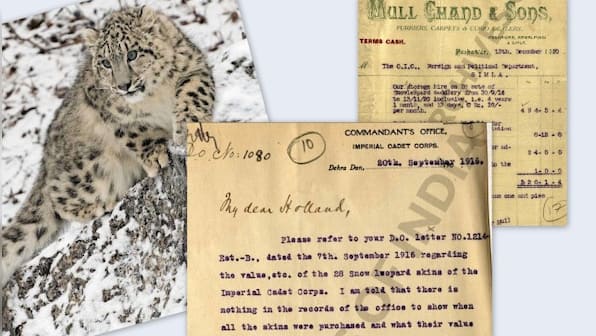 MULL CHAND & SONS,
FURRIERS, CARPETS & CURIO DEALERS,
PESHAWAR,
& SIMLA.
TERMS CASH.
Peshawar, 13th. December 1920
To The O.I/C., Foreign and Political Department,
SIMLA.
Our storage hire on 28 sets of
Snowleopard saddlery from 30/9/16
to 13/11/20 inclusive, i.e. 4 years
1 month, and 13 days, @ Rs. 10/-
per month.
COMMANDANT'S OFFICE,
IMPERIAL CADET CORPS.
D.O. No: 1080
10
Dehra Dun, 20th. September 1916.
My dear Holland,
Please refer to your D.O. letter NO.1214
Est.-B., dated the 7th. September 1916 regarding
the value, etc. of the 28 Snow leopard skins of the
Imperial Cadet Corps. I am told that there is
nothing in the records of the office to show when
all the skins were purchased and what their value